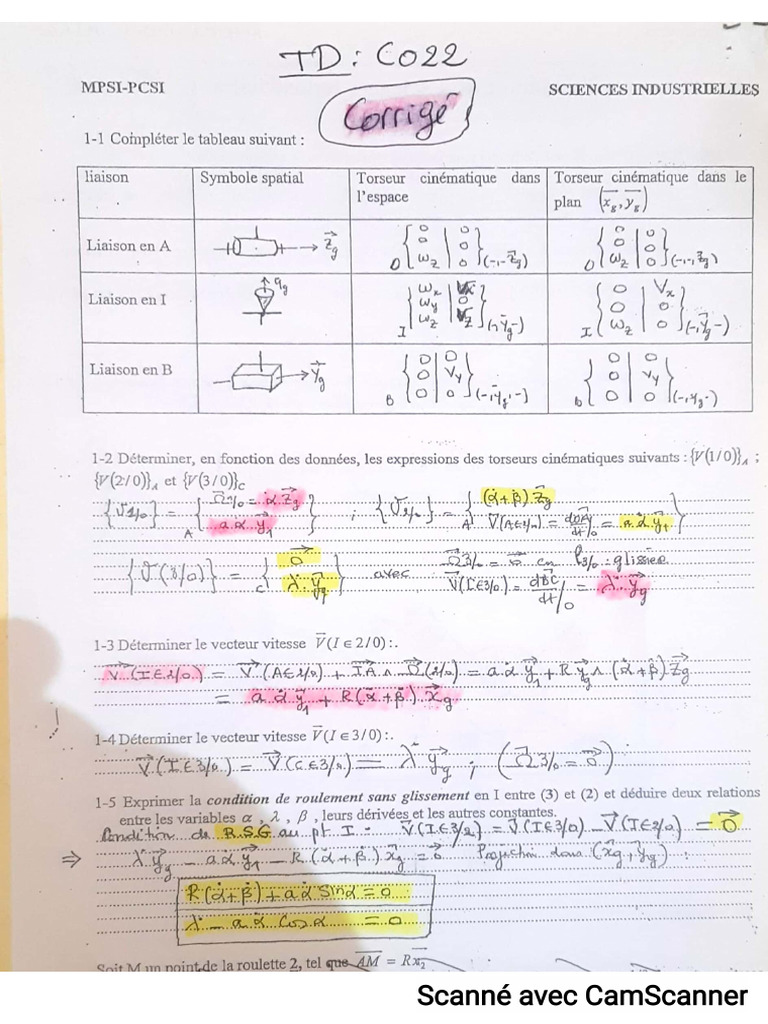 TD : CO22
MPSI-PCSI
SCIENCES INDUSTRIELLES
Corrigé
1-1 Compléter le tableau suivant :
liaison
Symbole spatial
Torseur cinématique dans l'espace
Torseur cinématique dans le plan (x_g, y_g)
Liaison en A
z_g
O { 0 0 ω_z | 0 0 0 } (-,-,z_g)
O { 0 0 ω_z | 0 0 0 } (-,-,z_g)
Liaison en I
y_g
I { ω_x ω_y ω_z | V_x 0 V_z } (-,y_g,-)
I { 0 0 ω_z | V_x 0 0 } (-,y_g,-)
Liaison en B
y_g
B { 0 0 0 | 0 V_y 0 } (-,y_g,-)
B { 0 0 0 | 0 V_y 0 } (-,y_g,-)
1-2 Déterminer, en fonction des données, les expressions des torseurs cinématiques suivants : {V(1/0)}_A ;
{V(2/0)}_A et {V(3/0)}_C
{V1/0} = A { Ω1/0 = α̇ z_g
a α̇ y_1 } ; {V2/0} = A { (α̇+β̇) z_g
V(A∈2/0) = dOA/dt/0 = a α̇ y_1 }
{V(3/0)} = C { 0
λ̇ y_g } avec Ω3/0 = 0 car L3/0 : glissière
V(C∈3/0) = dBC/dt/0 = λ̇ y_g
1-3 Déterminer le vecteur vitesse V(I ∈ 2/0) :.
V(I∈2/0) = V(A∈2/0) + IA ∧ Ω(2/0) = a α̇ y_1 + R y_g ∧ (α̇+β̇) z_g
= a α̇ y_1 + R(α̇+β̇) x_g
1-4 Déterminer le vecteur vitesse V(I ∈ 3/0) :.
V(I∈3/0) = V(C∈3/0) = λ̇ y_g ; (Ω3/0 = 0)
1-5 Exprimer la condition de roulement sans glissement en I entre (3) et (2) et déduire deux relations
entre les variables α , λ , β , leurs dérivées et les autres constantes.
Condition de R.S.G au pt I : V(I∈3/2) = V(I∈3/0) - V(I∈2/0) = 0
⇒ λ̇ y_g - a α̇ y_1 - R(α̇+β̇) x_g = 0 Projection dans (x_g, y_g) :
R(α̇+β̇) + a α̇ sin α = 0
λ̇ - a α̇ cos α = 0
Soit M un point de la roulette 2, tel que AM = R x_2
Scanné avec CamScanner